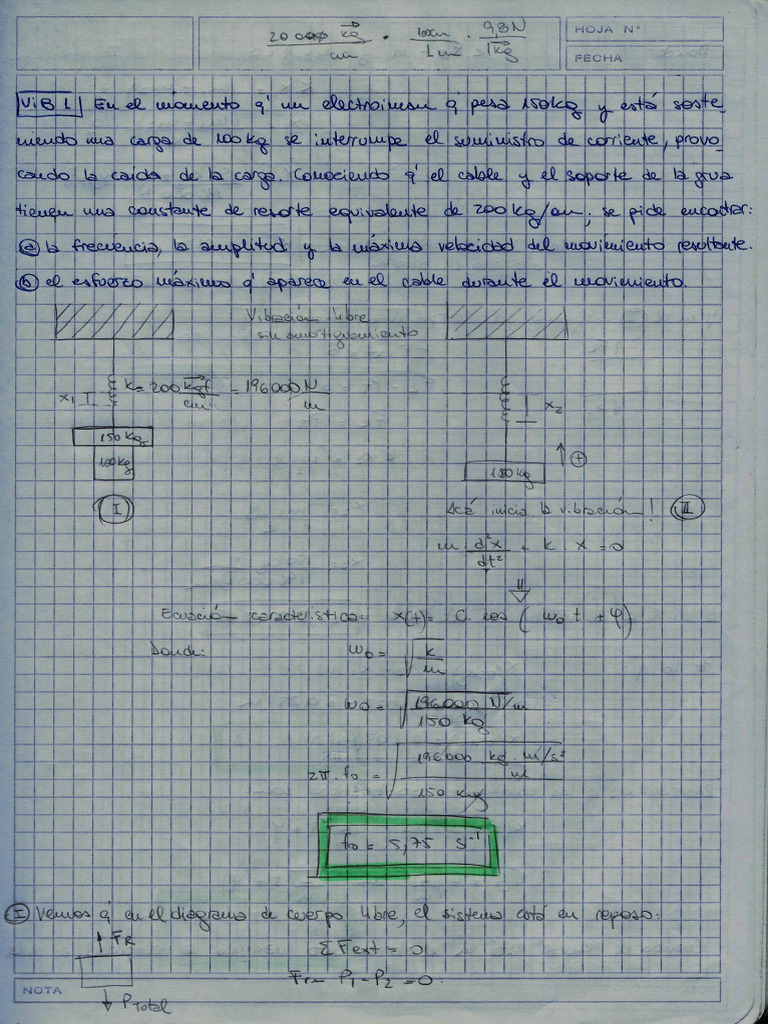 200 kg/cm . 100cm/1m . 9,8N/1kg
HOJA N°
FECHA
VIB 1 En el momento q' un electroiman q' pesa 150kg y está soste_
niendo una carga de 100kg se interrumpe el suministro de corriente, provo_
cando la caida de la carga. Conociendo q' el cable y el soporte de la grua
tienen una constante de resorte equivalente de 200kg/cm; se pide encotrar:
ⓐ la frecuencia, la amplitud y la máxima velocidad del movimiento resultante.
ⓑ el esfuerzo máximo q' aparece en el cable durante el movimiento.
Vibración libre
sin amortiguamiento
x1
k = 200 kgf/cm = 196000 N/m
x2
150kg
100kg
150kg
+
I
Acá inicia la vibración! II
m d²x/dt² + k x = 0
⇓
Ecuación caracteristica: x(t) = C. cos ( wo t + φ)
Donde: wo = √k/m
wo = √196000 N/m / 150 kg
2π . fo = √196000 kg . m/s² / m / 150 kg
fo = 5,75 s⁻¹
I Vemos q' en el diagrama de cuerpo libre, el sistema está en reposo:
FR
ΣFext = 0
Fr - P1 - P2 = 0
NOTA
PTotal